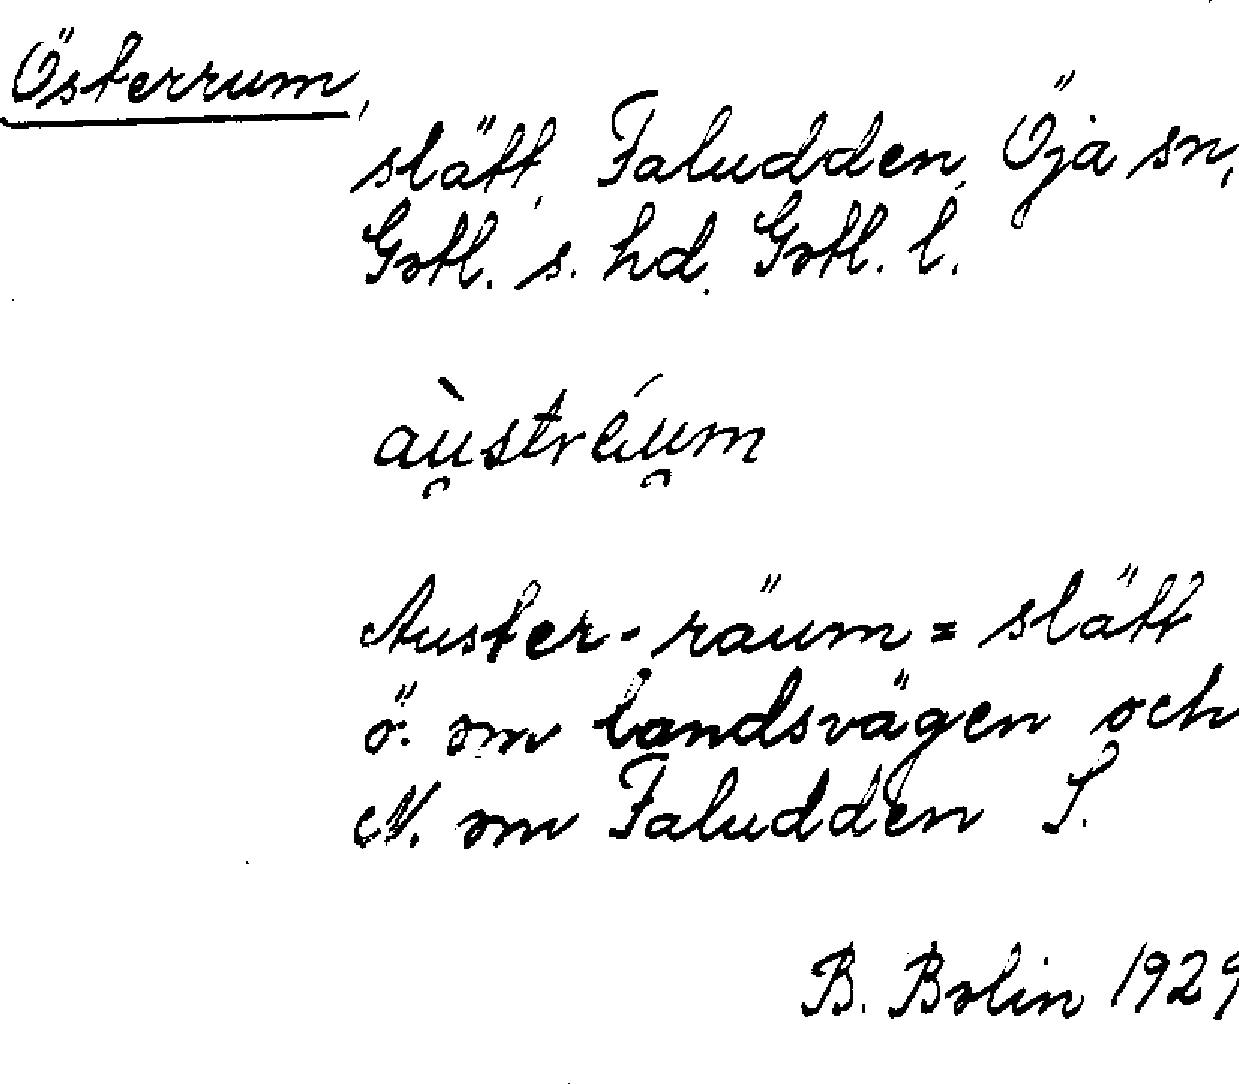 Österrum,
slätt, Faludden, Öja sn,
Gotl. s. hd. Gotl. l.
aù̯stréu̯m
Auster-räum = slätt
ö. om landsvägen och
N. om Faludden S.
B. Bolin 1929